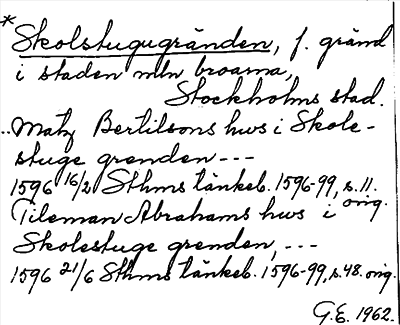 *
Skolstugugränden, f. gränd
i staden mln broarna,
Stockholms stad.
..Matz Bertilsons hws i Skole-
stuge grenden ---
1596 16/2 Sthms tänkeb. 1596-99, s. 11.
orig.
Tileman Abrahams hws i
Skolestuge grenden, ---
1596 21/6 Sthms tänkeb. 1596-99, s. 48. orig.
G.E. 1962.